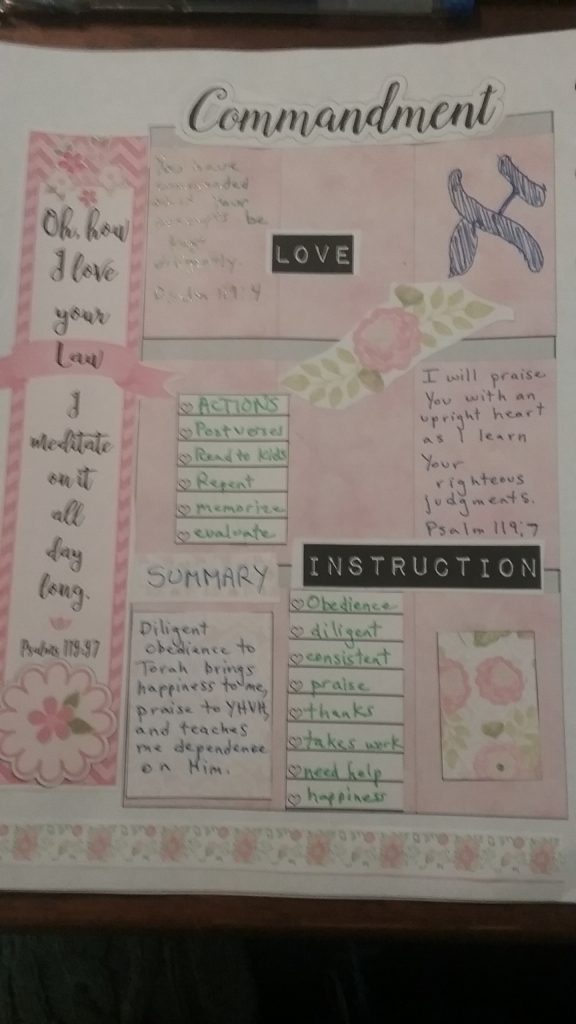 Commandment
Oh, how
I love
your
Law
I
meditate
on it
all
day
long.
Psalms 119:97
You have
commanded
your
precepts be
kept
diligently.
Psalm 119:4
LOVE
א
ACTIONS
Post verses
Read to kids
Repent
memorize
evaluate
I will praise
You with an
upright heart
as I learn
Your
righteous
judgments.
Psalm 119:7
SUMMARY
Diligent
obedience to
Torah brings
happiness to me,
praise to YHVH,
and teaches
me dependence
on Him.
INSTRUCTION
Obedience
diligent
consistent
praise
thanks
takes work
need help
happiness